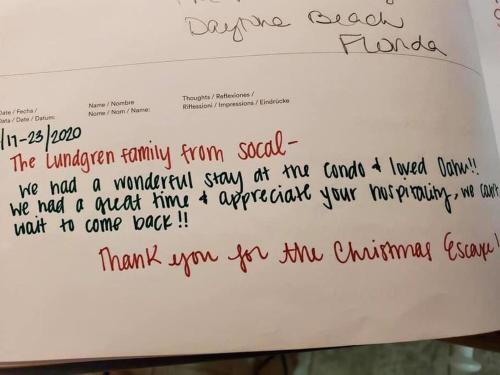 Daytona Beach
Florida
Date / Fecha /
Data / Date / Datum:
Name / Nombre
Nome / Nom / Name:
Thoughts / Reflexiones /
Riflessioni / Impressions / Eindrücke
/17-23/2020
The Lundgren family from socal-
We had a wonderful stay at the condo & loved Oahu!!
We had a great time & appreciate your hospitality, we can't
wait to come back!!
Thank you for the Christmas Escape!